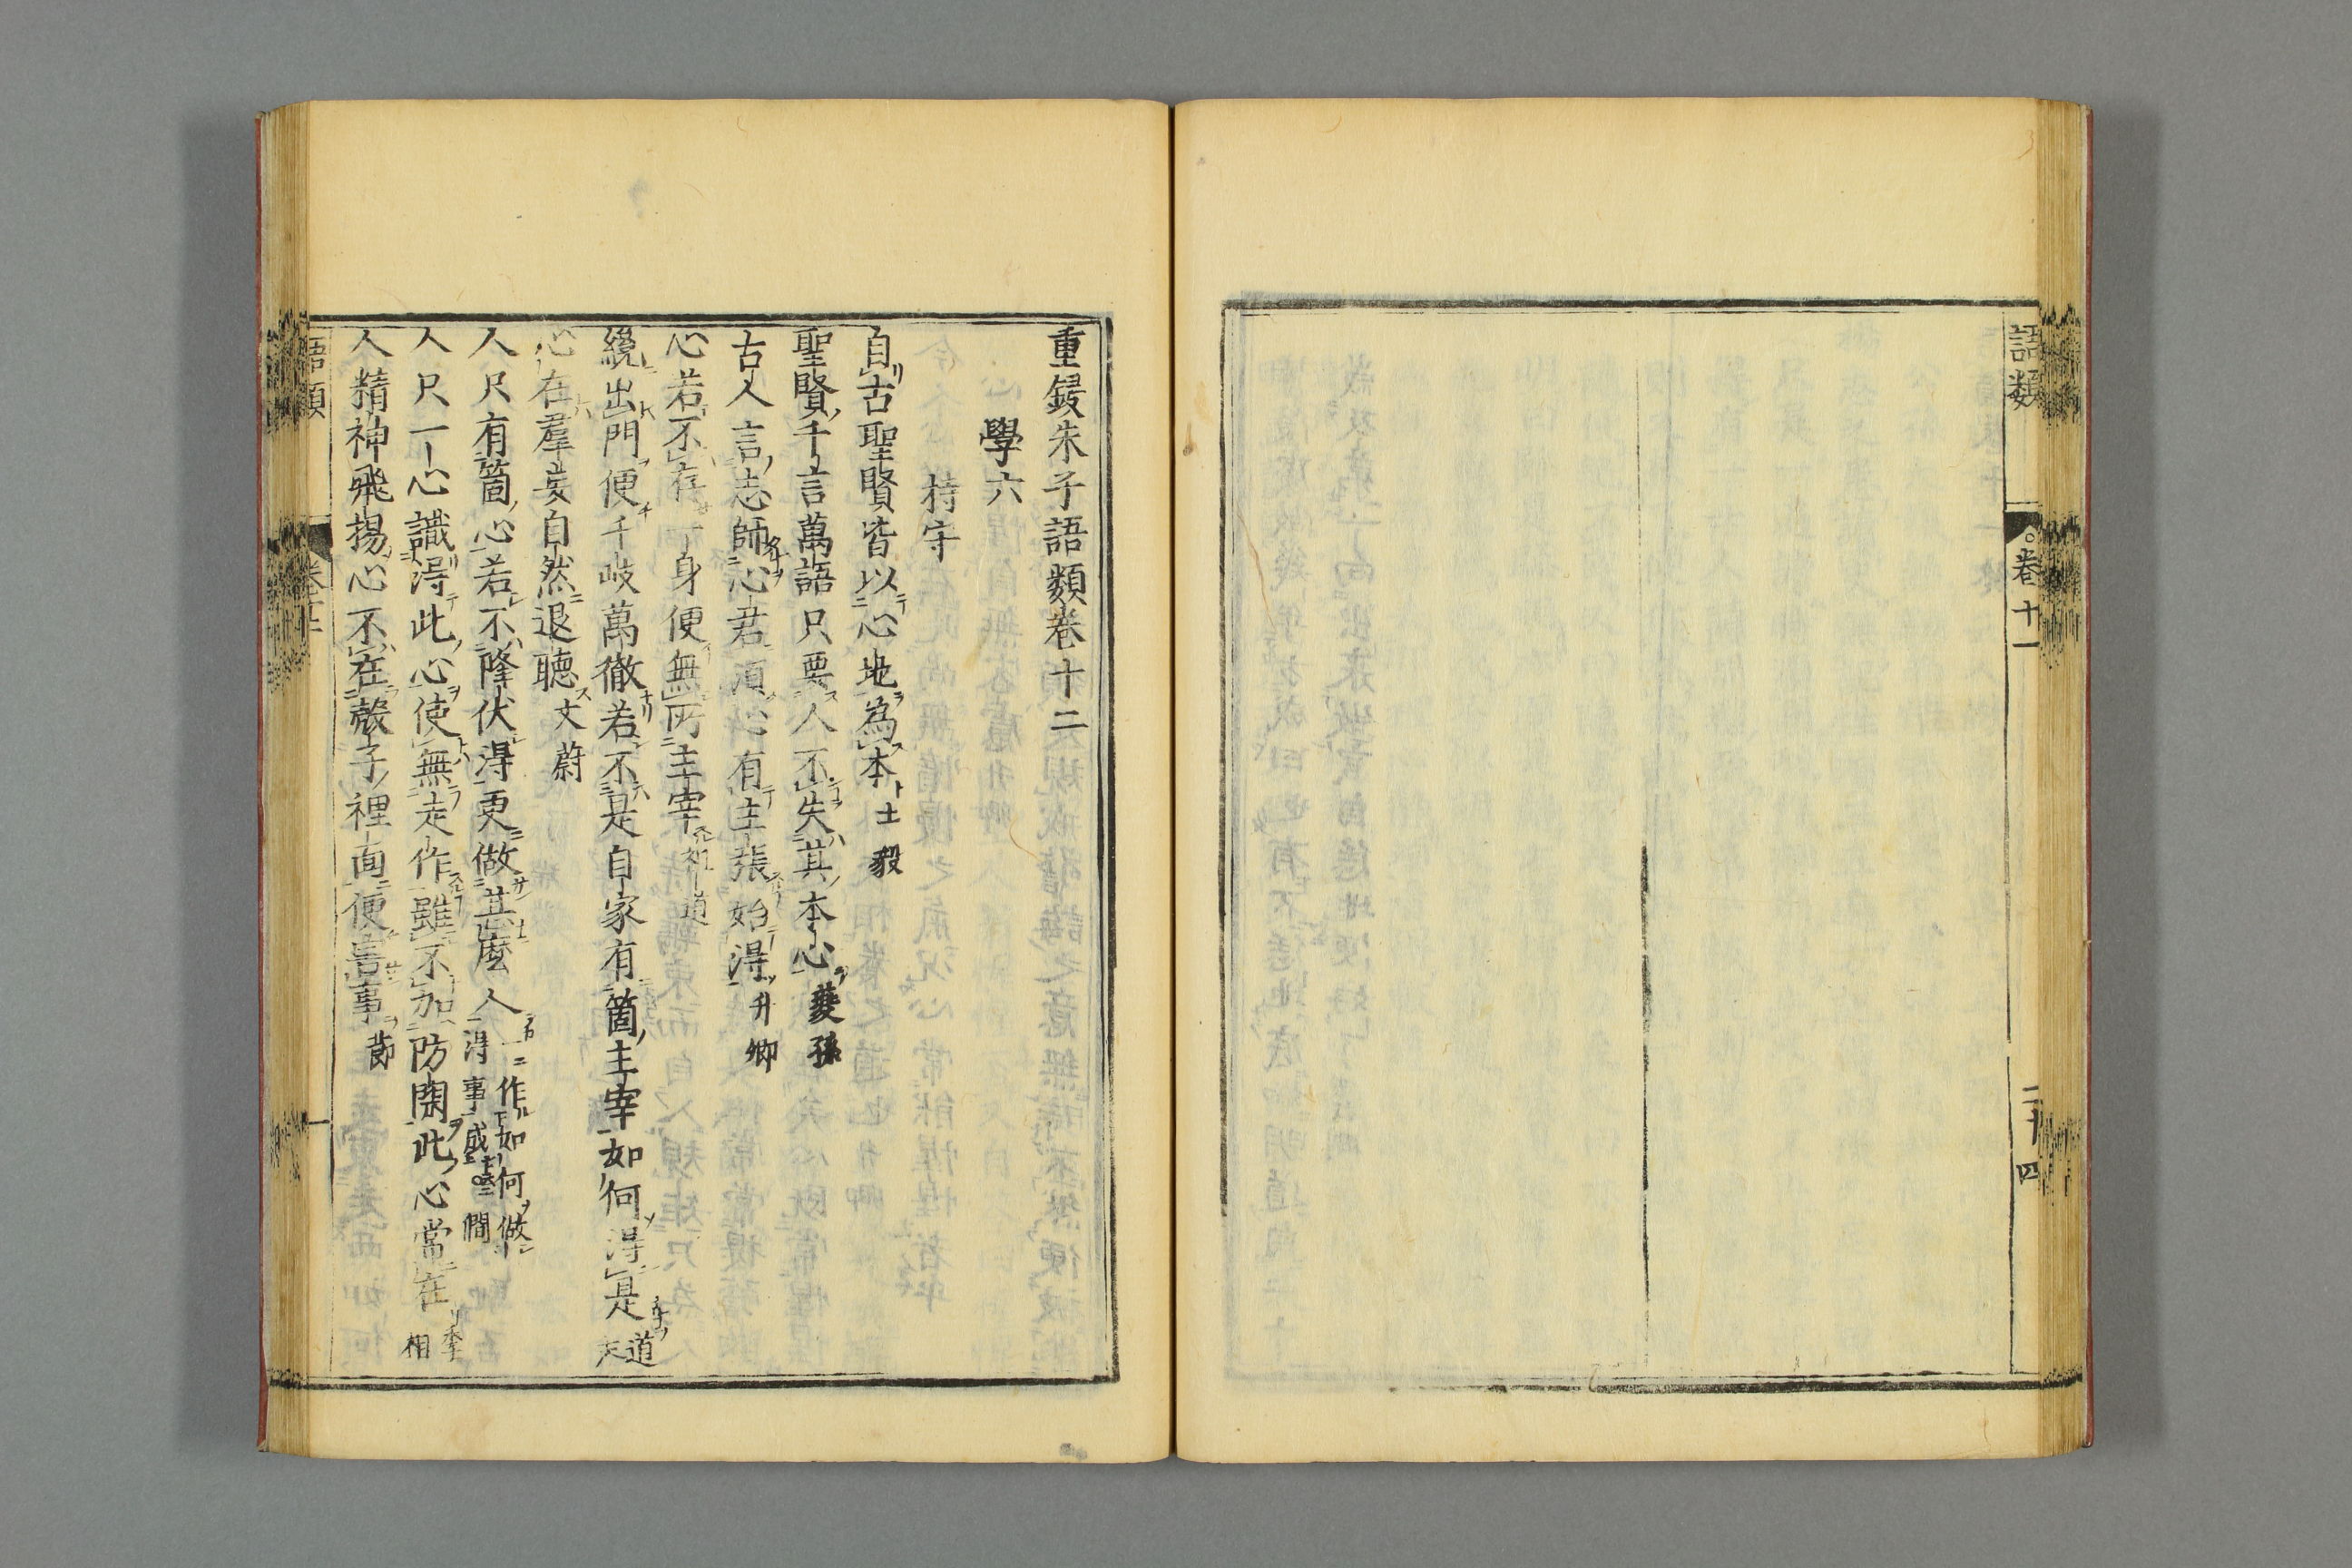 語類
卷十一
二十四
重鋟朱子語類卷十二
學六
持守
自古聖賢皆以心地為本士毅
聖賢千言萬語只要人不失其本心夔孫
古人言志師心君須心有主張始得升卿
心若不存一身便無所主宰祖道
纔出門便千岐萬徹若不是自家有箇主宰如何得是道夫
心在羣妄自然退聽文蔚
人只有箇心若不降伏得更做甚麼人一作如何做得事成僩
人只一心識得此心使無走作雖不加防閑此心常在季相
人精神飛揚心不在殼子裡面便害事節
語類
卷十二
一